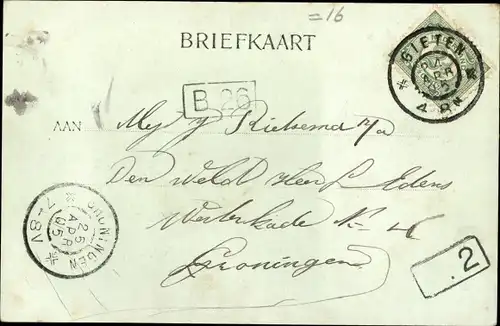 =16
BRIEFKAART
GIETEN
24
APR
05
4 8N
B 26
AAN Mej J Rietsema p/a
Den Weled Heer L Edens
Westerkade No 16
Groningen
GRONINGEN
25
APR
05
7-8V
2